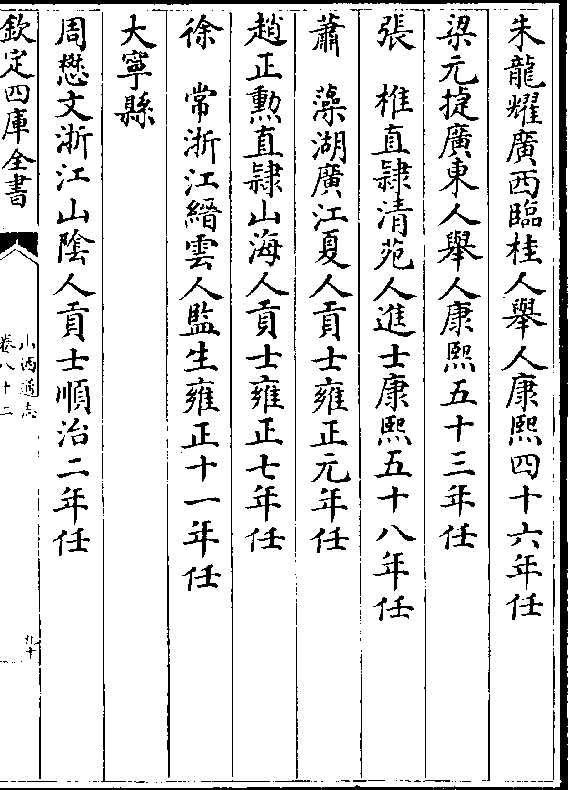 朱龍耀廣西臨桂人舉人康熙四十六年任
梁元㨗廣東人舉人康熙五十三年任
張　椎直隸清苑人進士康熙五十八年任
蕭　藻湖廣江夏人貢士雍正元年任
趙正勲直隸山海人貢士雍正七年任
徐　常浙江縉雲人監生雍正十一年任
大寧縣
周懋文浙江山陰人貢士順治二年任
欽定四庫全書
山西通志
卷八十二
九十